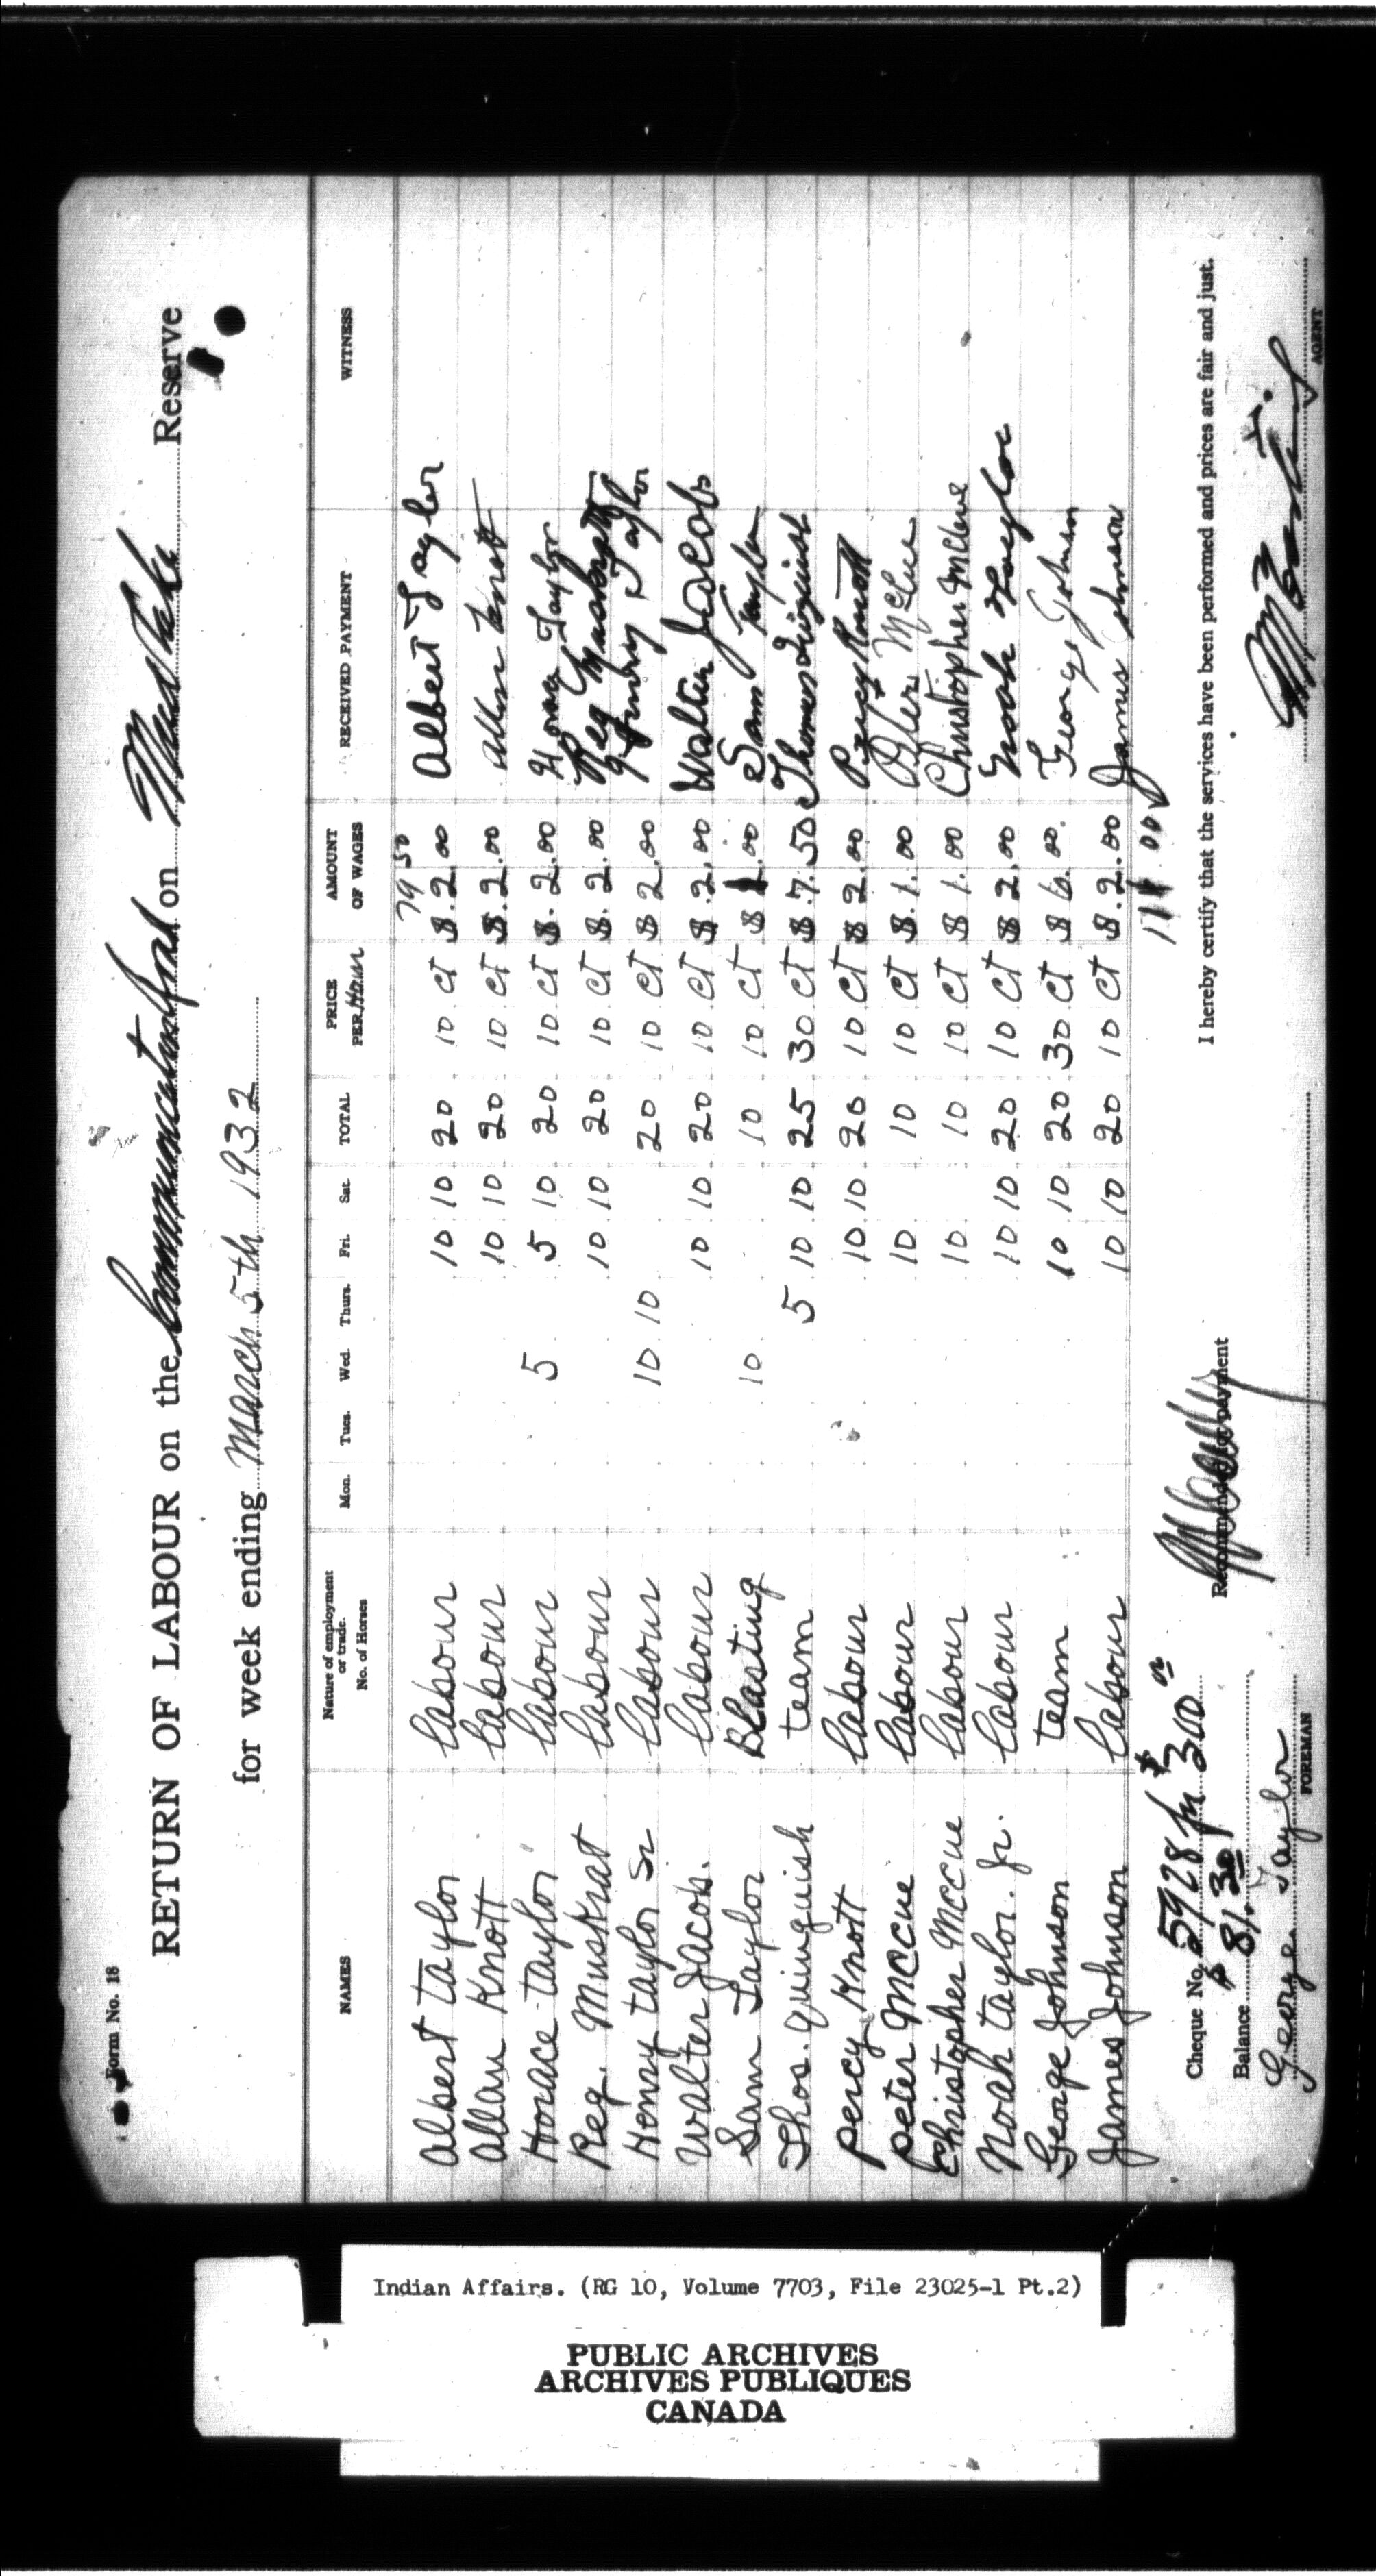 Form No. 18
RETURN OF LABOUR on the Communication road on Mud Lake Reserve
for week ending March 5th 1932
NAMES Nature of employment or trade. No. of Horses Mon. Tues. Wed. Thurs. Fri. Sat. TOTAL PRICE PER Hour AMOUNT OF WAGES RECEIVED PAYMENT WITNESS
79 50
Albert Taylor labour 10 10 20 10 ct $.2.00 Albert Taylor
Allan Knott labour 10 10 20 10 ct $.2.00 Allan Knott
Horace taylor labour 5 5 10 20 10 ct $.2.00 Horace Taylor
Reg. Muskrat labour 10 10 20 10 ct $.2.00 Reg Muskratt
Henry taylor Sr labour 10 10 20 10 ct $2.00 Henry Taylor
Walter Jacobs. labour 10 10 20 10 ct $.2.00 Walter Jacobs
Sam Taylor Blasting 10 10 10 ct $1.00 Sam Taylor
Thos. quinquish team 5 10 10 25 30 ct $.7.50 Thomas
percy Knott labour 10 10 20 10 ct $2.00 Percy Knott
peter McCue labour 10 10 10 ct $.1.00 Peter McCue
Christopher McCue labour 10 10 10 ct $1.00 Christopher McCue
Noah taylor. Jr. labour 10 10 20 10 ct $2.00 Noah Taylor
George Johnson team 10 10 20 30 ct $6.00. George Johnson
James Johnson labour 10 10 20 10 ct $.2.00 James Johnson
Cheque No. 5928 for $300 00
Balance $81.30
George Taylor
FOREMAN
Recommended for payment
I hereby certify that the services have been performed and prices are fair and just.
AGENT
Indian Affairs. (RG 10, Volume 7703, File 23025-1 Pt.2)
PUBLIC ARCHIVES
ARCHIVES PUBLIQUES
CANADA